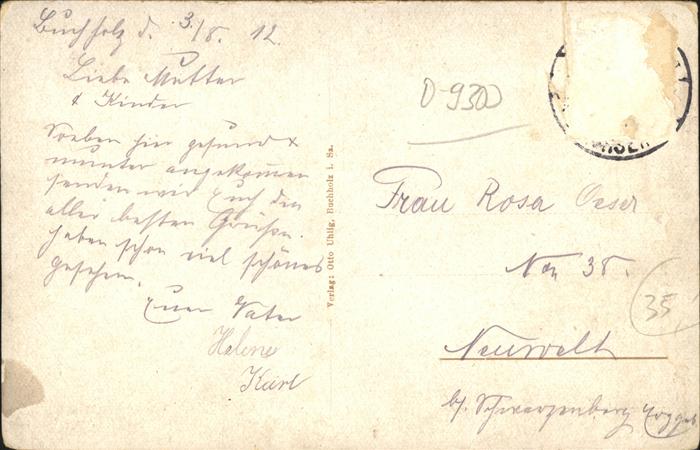 Buchholz d. 3./8. 12.
Liebe Mutter
& Kinder
Soeben hier gesund &
munter angekommen
senden wir Euch den
aller besten Grüße.
haben schon viel schönes
gesehen.
Euer Vater
Helene
Karl
Verlag: Otto Uhlig, Buchholz i. Sa.
D-9300
Frau Rosa Oeser
No 38.
35
Neuwelt
b/ Schwarzenberg Erzgeb